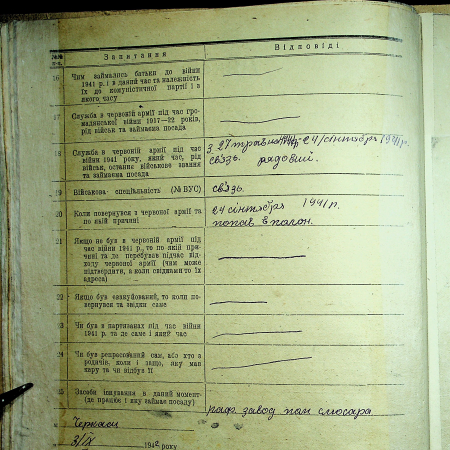 №№ п-п.
Запитання
Відповіді
16
Чим займались батьки до війни
1941 р. і в даний час та належність
їх до комуністичної партії і з
якого часу
17
Служба в червоній армії під час гро-
малянської війни 1917—22 років,
рід військ та займаєма посада
18
Служба в червоній армії під час
війни 1941 року, який час, рід
військ, останнє військове звання
та займаєма посада
з 27 травня 1941р. 24/сентября 1941р.
связь. рядовий.
19
Військова спеціяльність (№ ВУС)
связь.
20
Коли повернувся з червоної армії та
по якій причині
24 сентября 1941 р.
попав в полон.
21
Якщо не був в червоній армії під
час війни 1941 р., то по якій при-
чині та де перебував підчас від-
ходу червоної армії (чим може
підтвердити, а коли свідками то їх
адреса)
22
Якщо був евакуйований, то коли по-
вернувся та звідки саме
23
Чи був в партизанах під час війни
1941 р. та де саме і який час
24
Чи був репресований сам, або хто з
родичів, коли і защо, яку мав
кару та чи відбув її
25
Засоби існування в даний момент
(де працює і яку займає посаду)
раф. завод пом слюсара
Черкаси
3/IX 1942 року